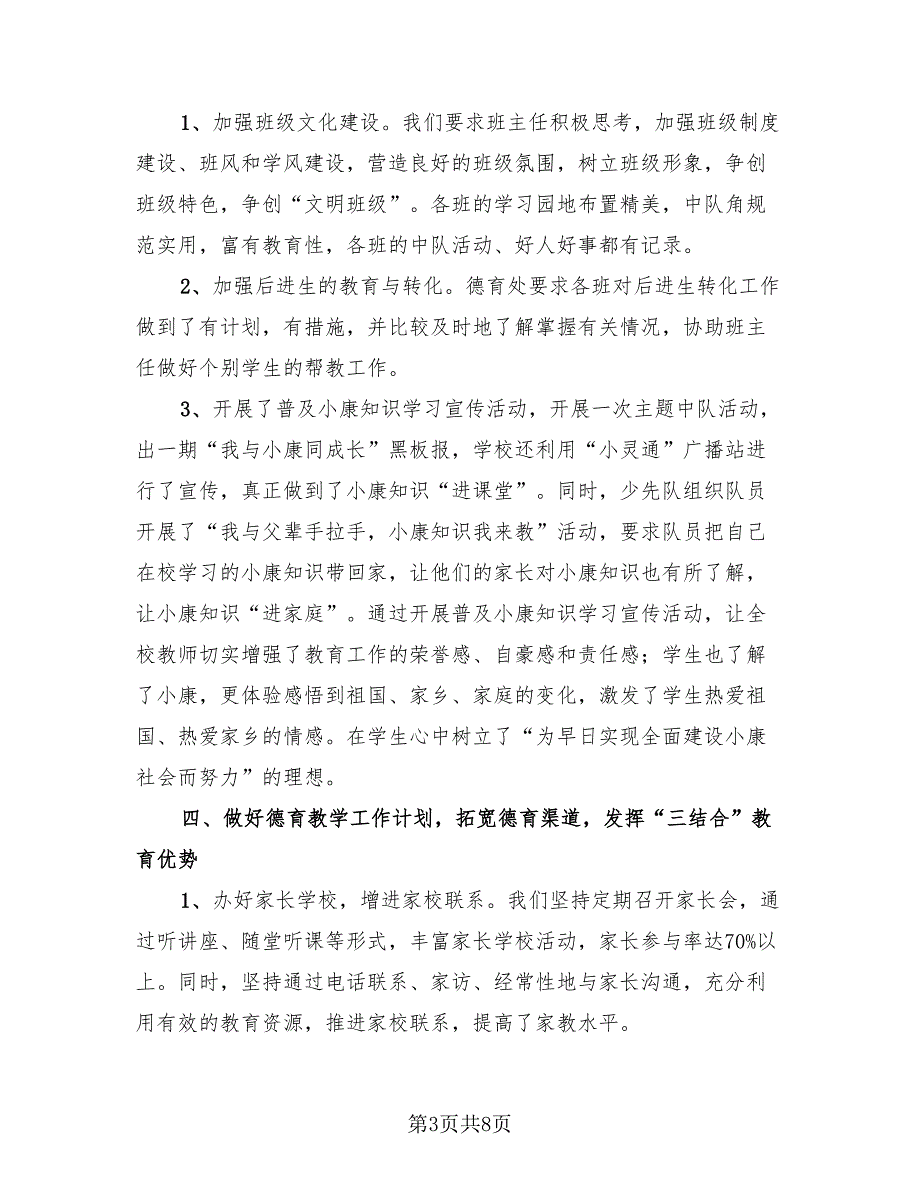 1、加强班级文化建设。我们要求班主任积极思考，加强班级制度
建设、班风和学风建设，营造良好的班级氛围，树立班级形象，争创
班级特色，争创“文明班级”。各班的学习园地布置精美，中队角规
范实用，富有教育性，各班的中队活动、好人好事都有记录。
2、加强后进生的教育与转化。德育处要求各班对后进生转化工作
做到了有计划，有措施，并比较及时地了解掌握有关情况，协助班主
任做好个别学生的帮教工作。
3、开展了普及小康知识学习宣传活动，开展一次主题中队活动，
出一期“我与小康同成长”黑板报，学校还利用“小灵通”广播站进
行了宣传，真正做到了小康知识“进课堂”。同时，少先队组织队员
开展了“我与父辈手拉手，小康知识我来教”活动，要求队员把自己
在校学习的小康知识带回家，让他们的家长对小康知识也有所了解，
让小康知识“进家庭”。通过开展普及小康知识学习宣传活动，让全
校教师切实增强了教育工作的荣誉感、自豪感和责任感；学生也了解
了小康，更体验感悟到祖国、家乡、家庭的变化，激发了学生热爱祖
国、热爱家乡的情感。在学生心中树立了“为早日实现全面建设小康
社会而努力”的理想。
四、做好德育教学工作计划，拓宽德育渠道，发挥“三结合”教
育优势
1、办好家长学校，增进家校联系。我们坚持定期召开家长会，通
过听讲座、随堂听课等形式，丰富家长学校活动，家长参与率达70%以
上。同时，坚持通过电话联系、家访、经常性地与家长沟通，充分利
用有效的教育资源，推进家校联系，提高了家教水平。
第3页共8页